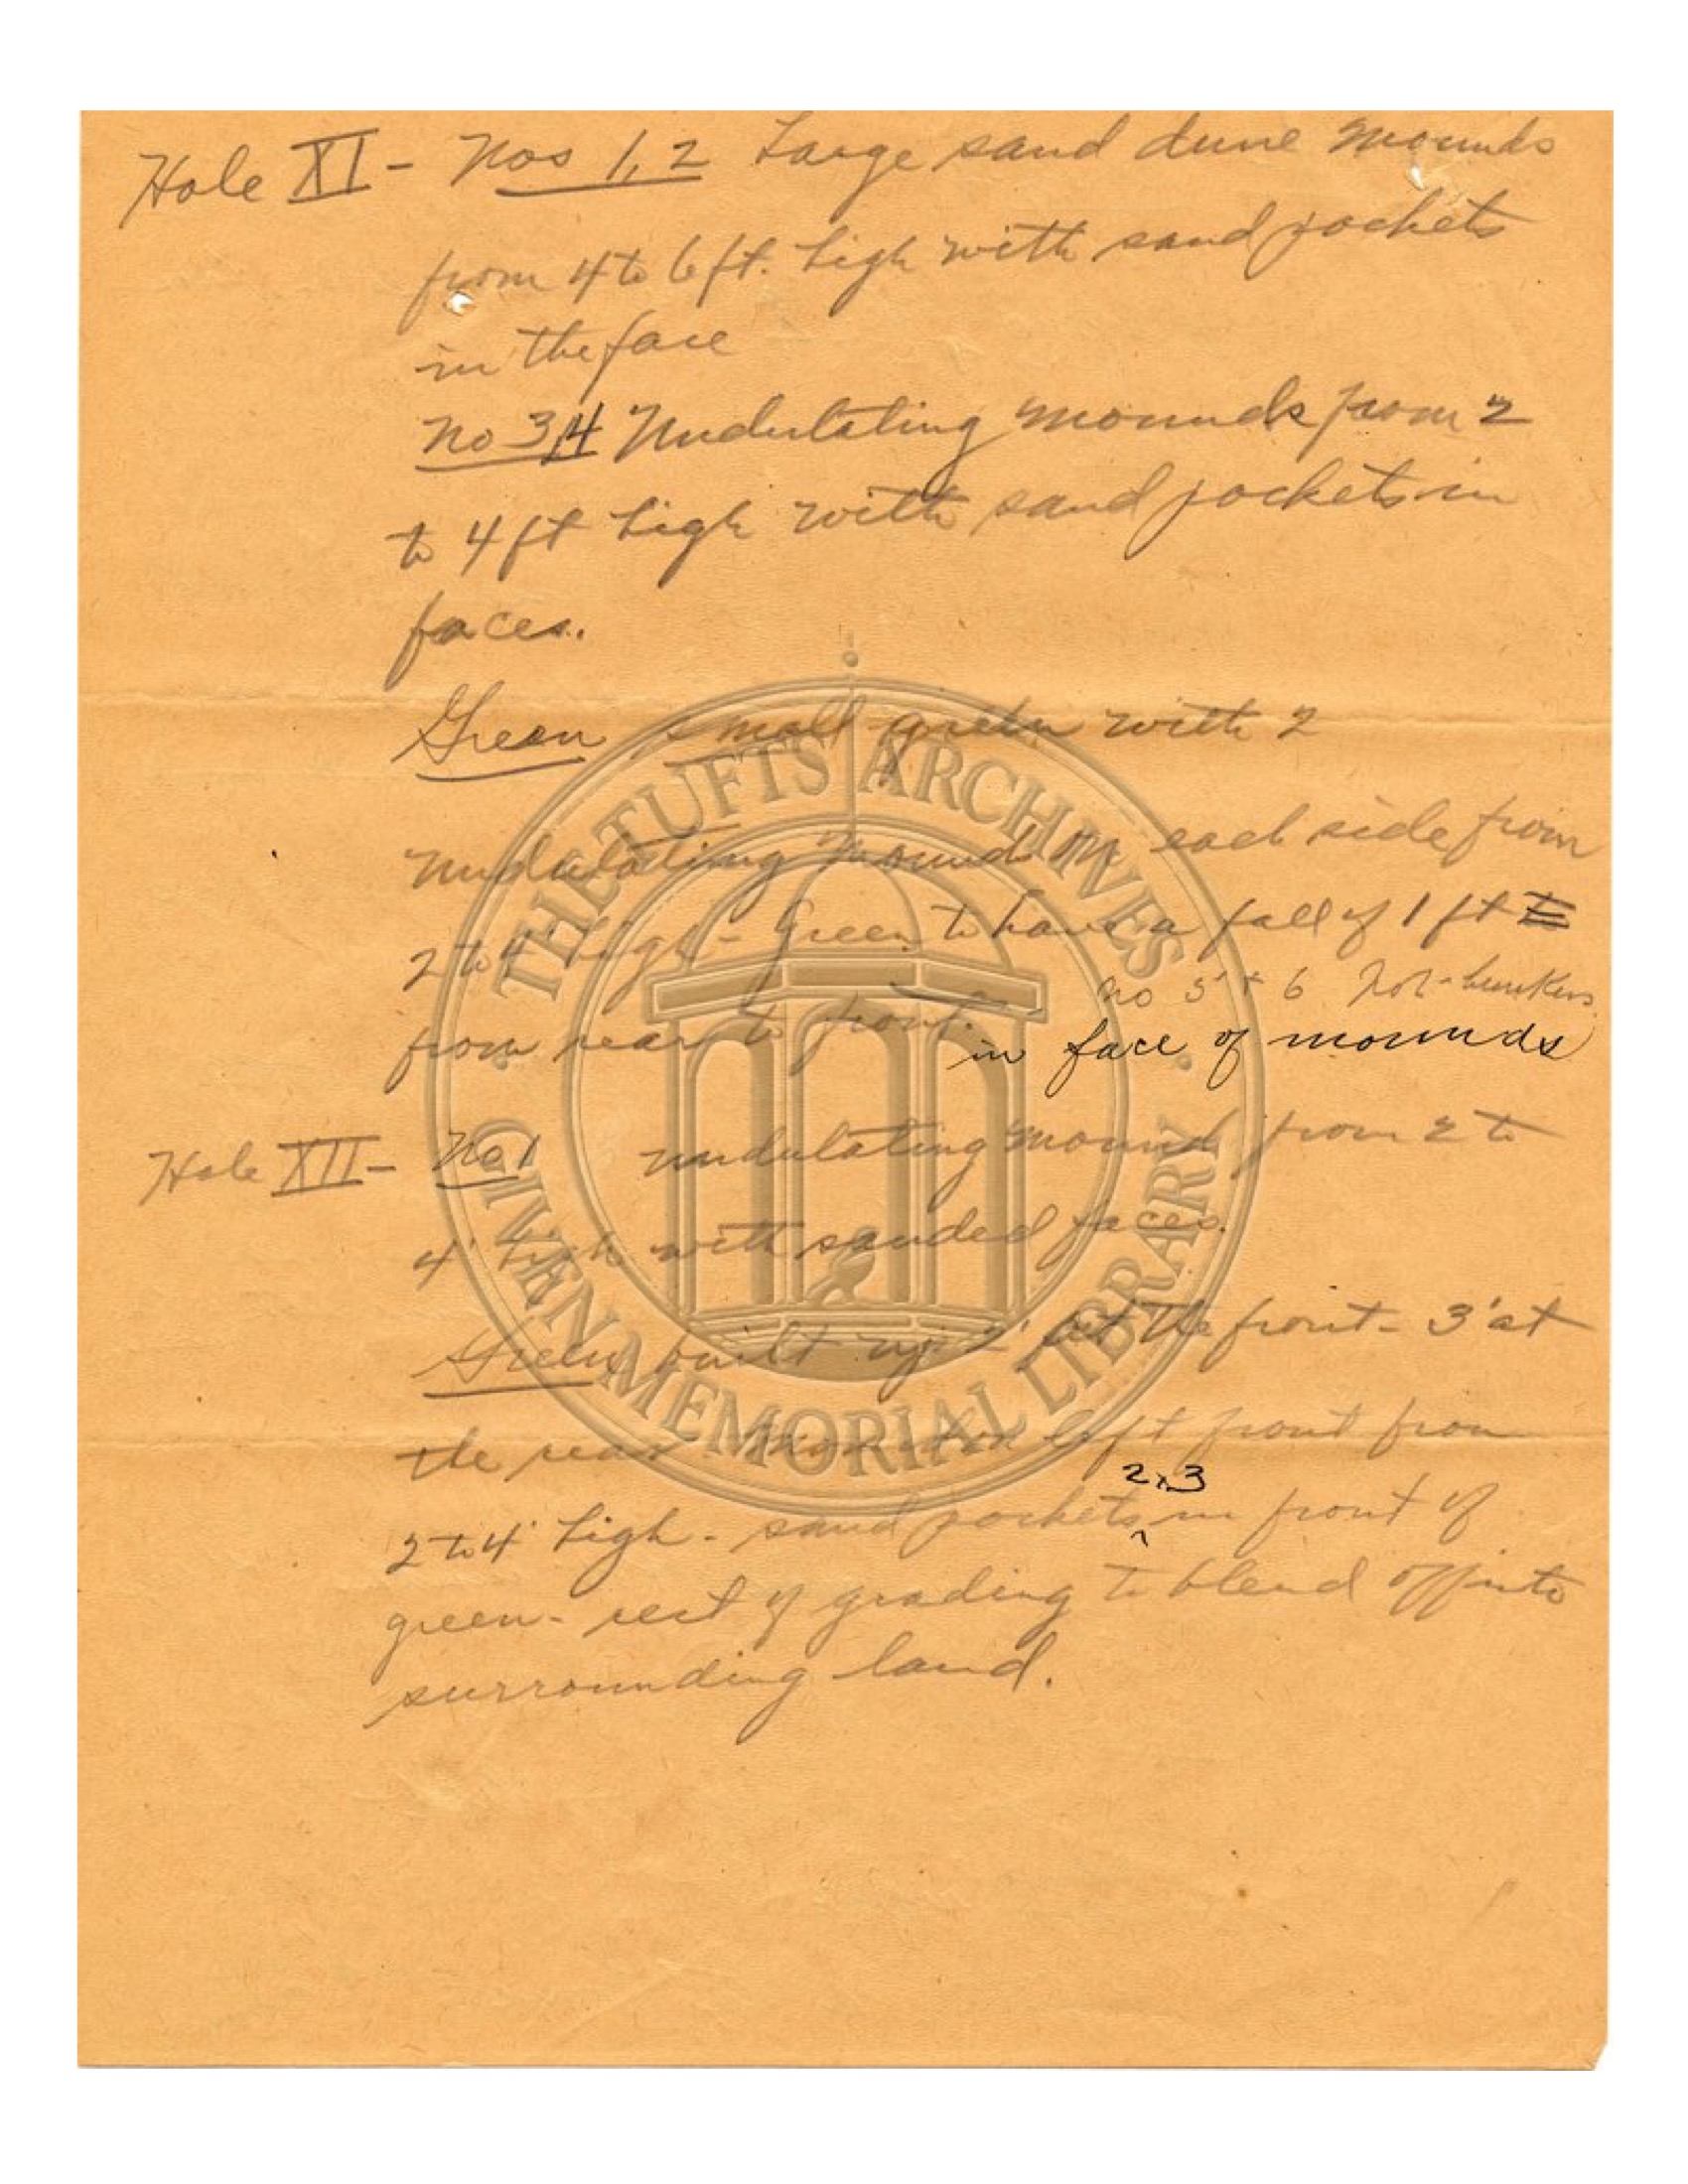 Hole XI - Nos 1, 2 Large sand dune mounds
from 4 to 6 ft. high with sand pockets
in the face
No 3,4 Undulating mounds from 2
to 4 ft high with sand pockets in
faces.
Green small green with 2
undulating mounds on each side from
2 to 4' high - Green to have a fall of 1 ft
from rear to front. no 5 + 6 Pot-bunkers
in face of mounds
Hole XII - No 1 undulating mound from 2 to
4' high with sanded faces.
Green built up 2' at the front - 3' at
the rear. left front from
2 to 4' high - sand pockets 2,3 in front of
green - rest of grading to blend off into
surrounding land.
THE TUFTS ARCHIVES
GIVEN MEMORIAL LIBRARY